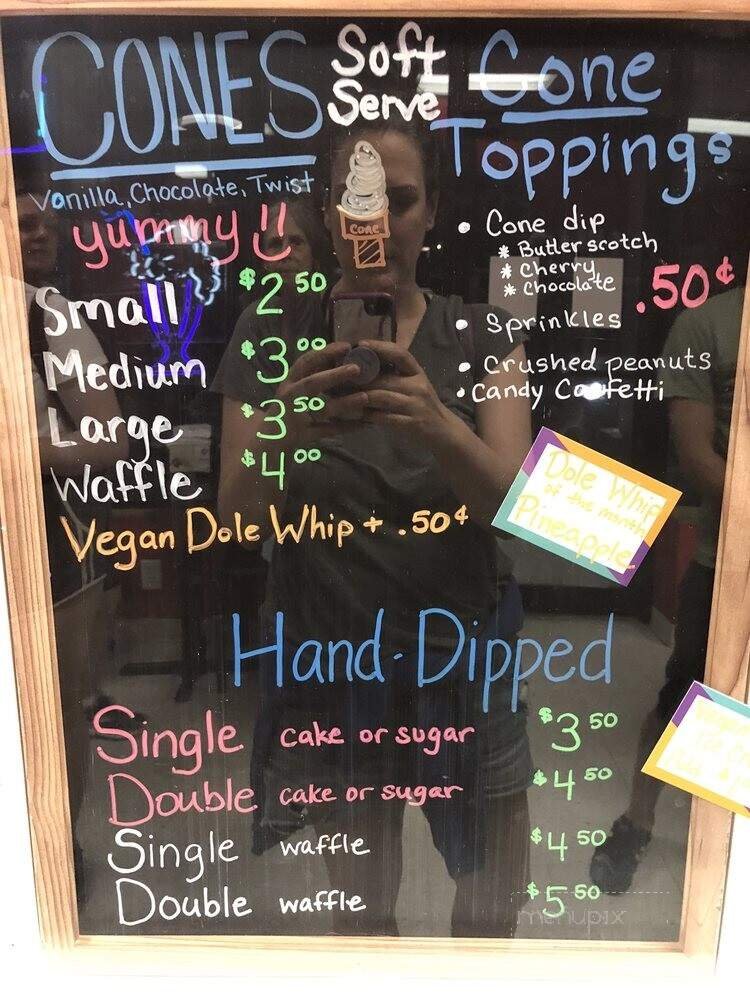 CONES
Soft
Serve
Cone
Toppings
Vanilla, Chocolate, Twist
yummy!!
Cone
Small $2 50
Medium $3 00
Large $3 50
Waffle $4 00
Vegan Dole Whip + .50¢
• Cone dip
* Butterscotch
* Cherry
* Chocolate
.50¢
• Sprinkles
• Crushed peanuts
• Candy Confetti
Dole Whip
of the month
Pineapple
Hand-Dipped
Single cake or sugar $3 50
Double cake or sugar $4 50
Single waffle $4 50
Double waffle $5 50
menupix